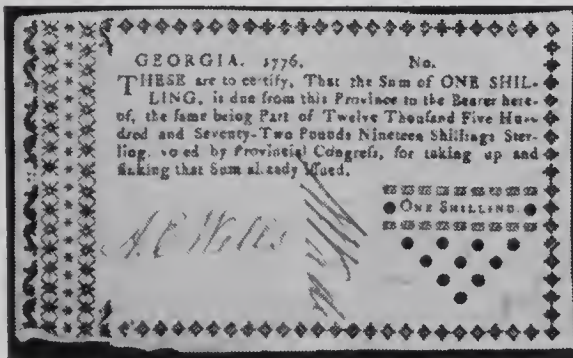 GEORGIA. 1776. No.
THESE are to certify, That the Sum of ONE SHIL-
LING, is due from this Province to the Bearer here-
of, the same being Part of Twelve Thousand Five Hun-
dred and Seventy-Two Pounds Nineteen Shillings Ster-
ling, voted by Provincial Congress, for taking up and
sinking that Sum already issued.
ONE SHILLING.